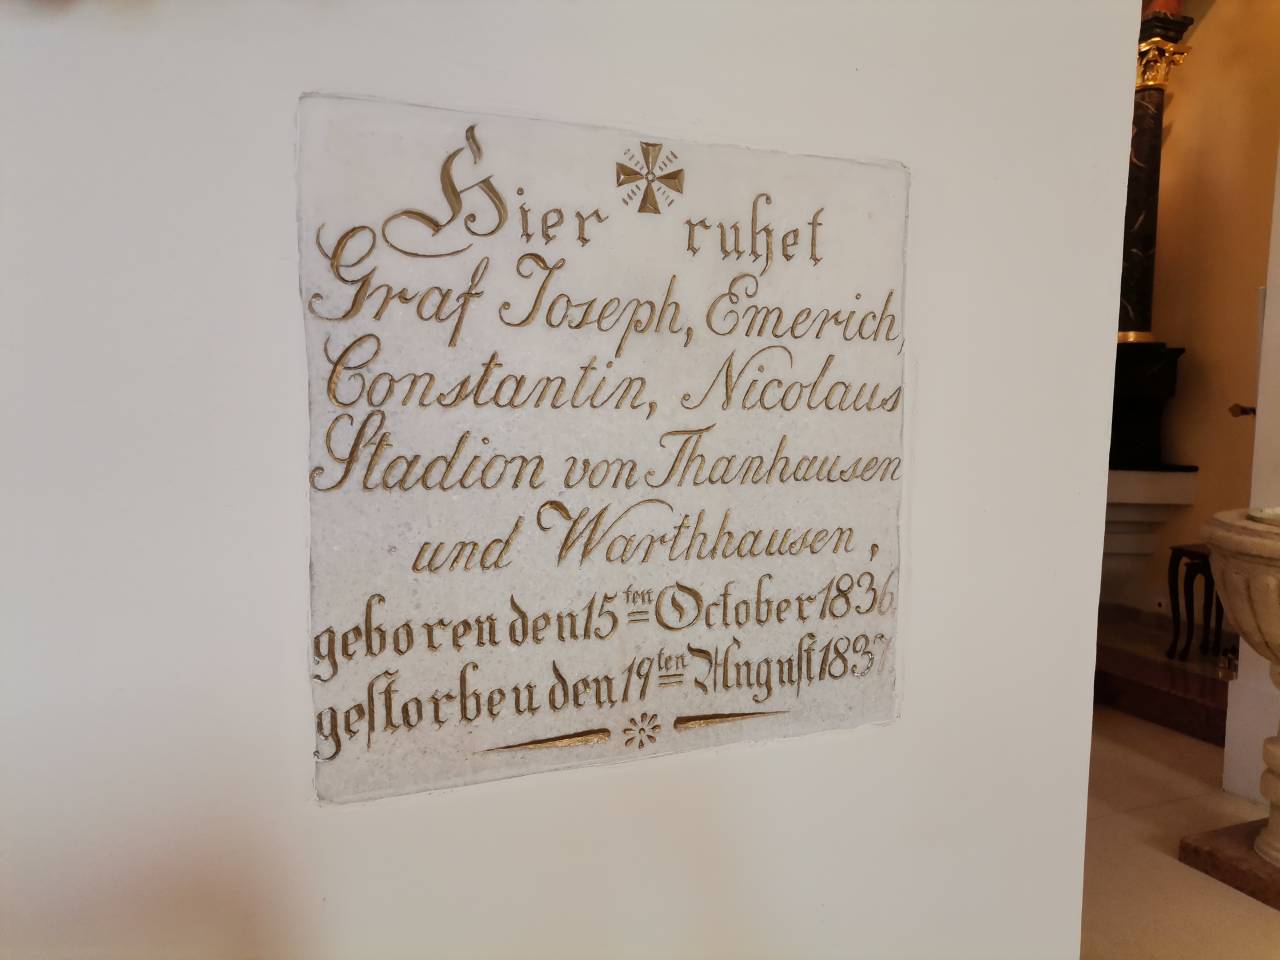 Hier ruhet
Graf Joseph, Emerich,
Constantin, Nicolaus
Stadion von Thanhausen
und Warthhausen,
geboren den 15ten October 1836.
gestorben den 19ten August 1837.